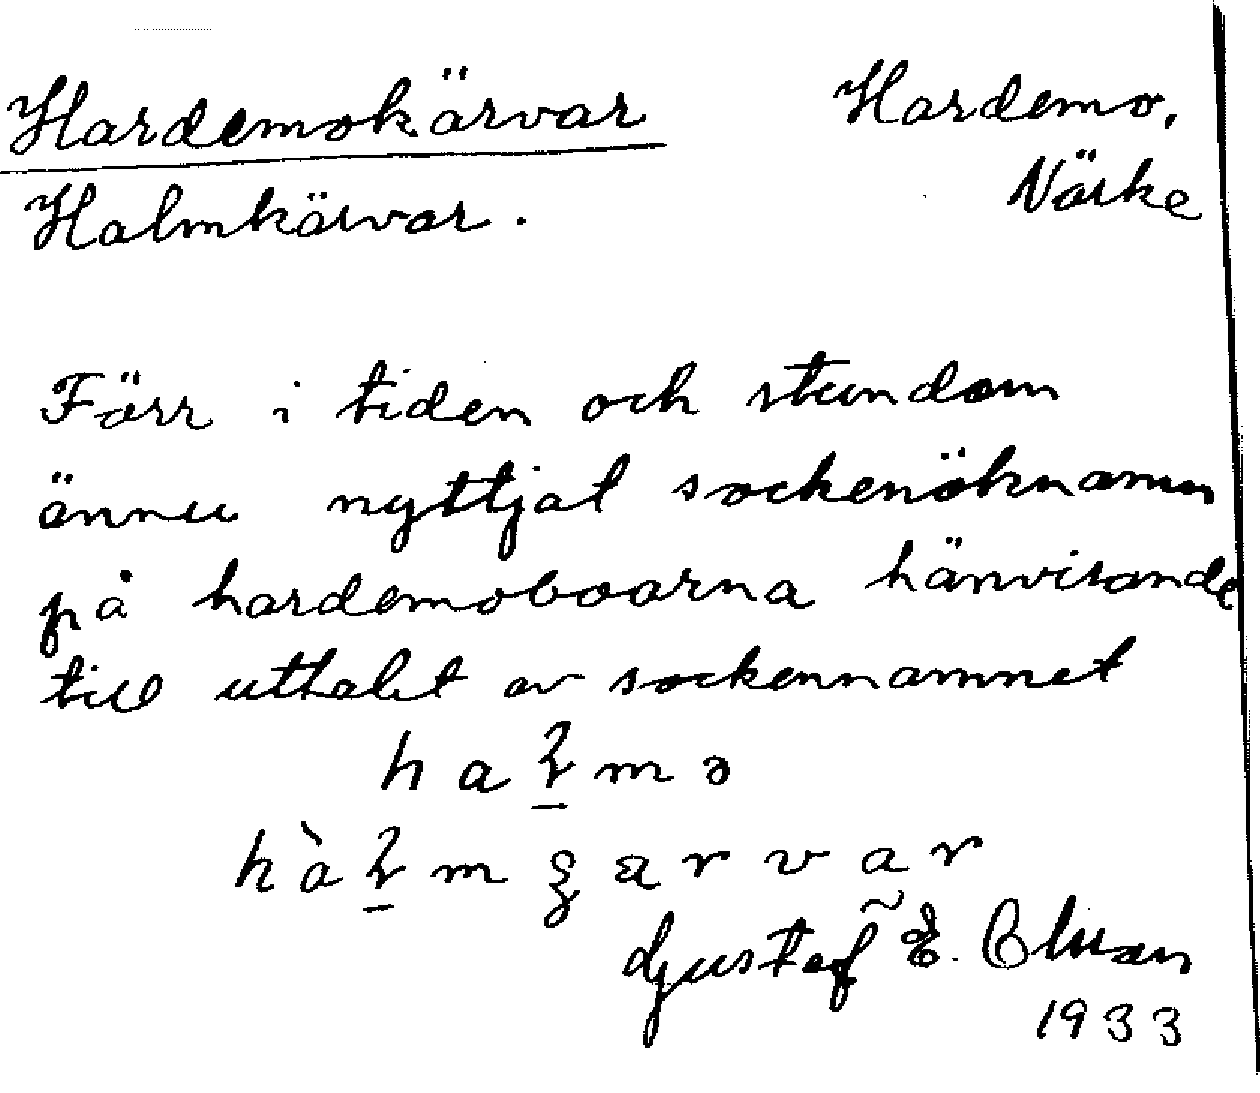 Hardemokärvar
Hardemo,
Närke
Halmkärvar.
Förr i tiden och stundom
ännu nyttjat sockenöknamn
på hardemoboarna hänvisande
till uttalet av sockennamnet
Gustaf E.
1933